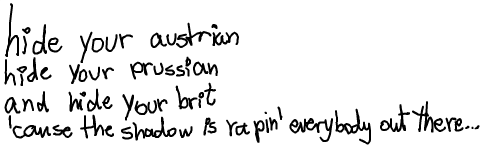 hide your austrian
hide your prussian
and hide your brit
'cause the shadow is rapin' everybody out there...